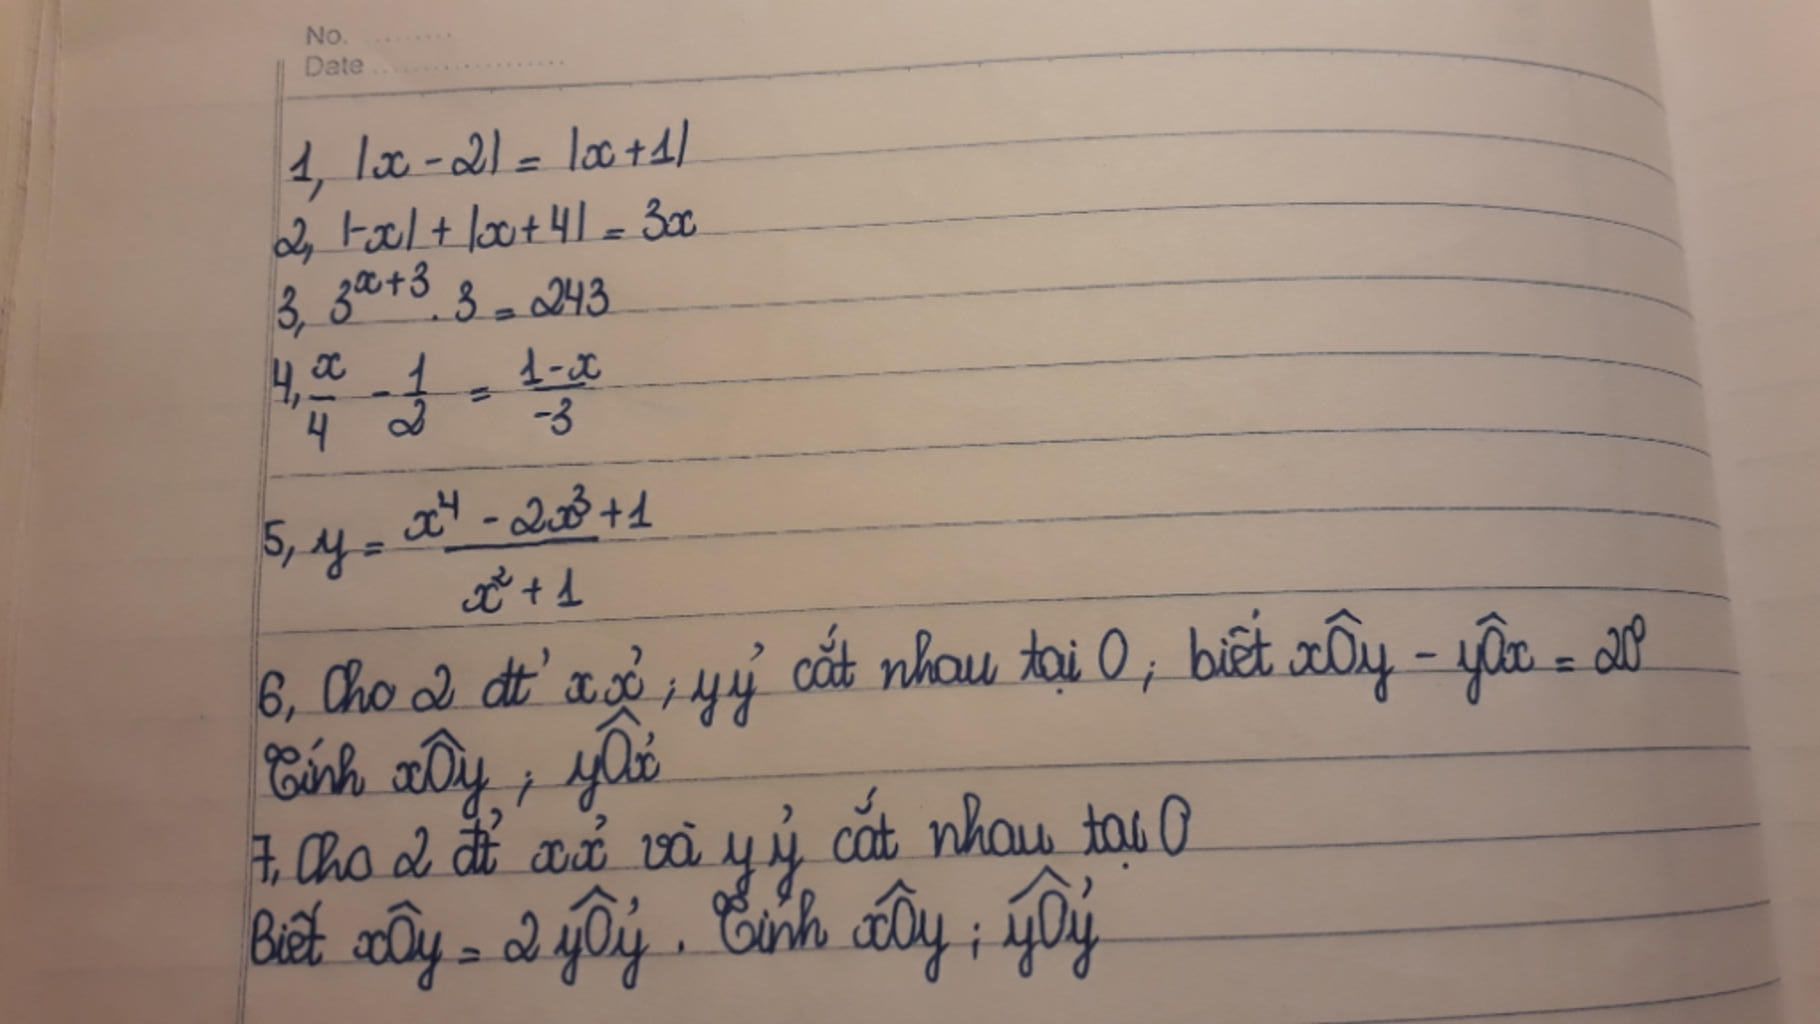 No. .........
Date ...................
1, |x - 2| = |x + 1|
2, |-x| + |x + 4| = 3x
3, 3^{x+3} . 3 = 243
4, x/4 - 1/2 = (1-x)/(-3)
5, y = (x⁴ - 2x³ + 1)/(x² + 1)
6, Cho 2 đt' xx' ; yy' cắt nhau tại O ; biết xÔy - yÔx = 20°
Tính xÔy ; yÔx'
7, Cho 2 đt' xx' và yy' cắt nhau tại O
Biết xÔy = 2 yÔy' . Tính xÔy ; yÔy'